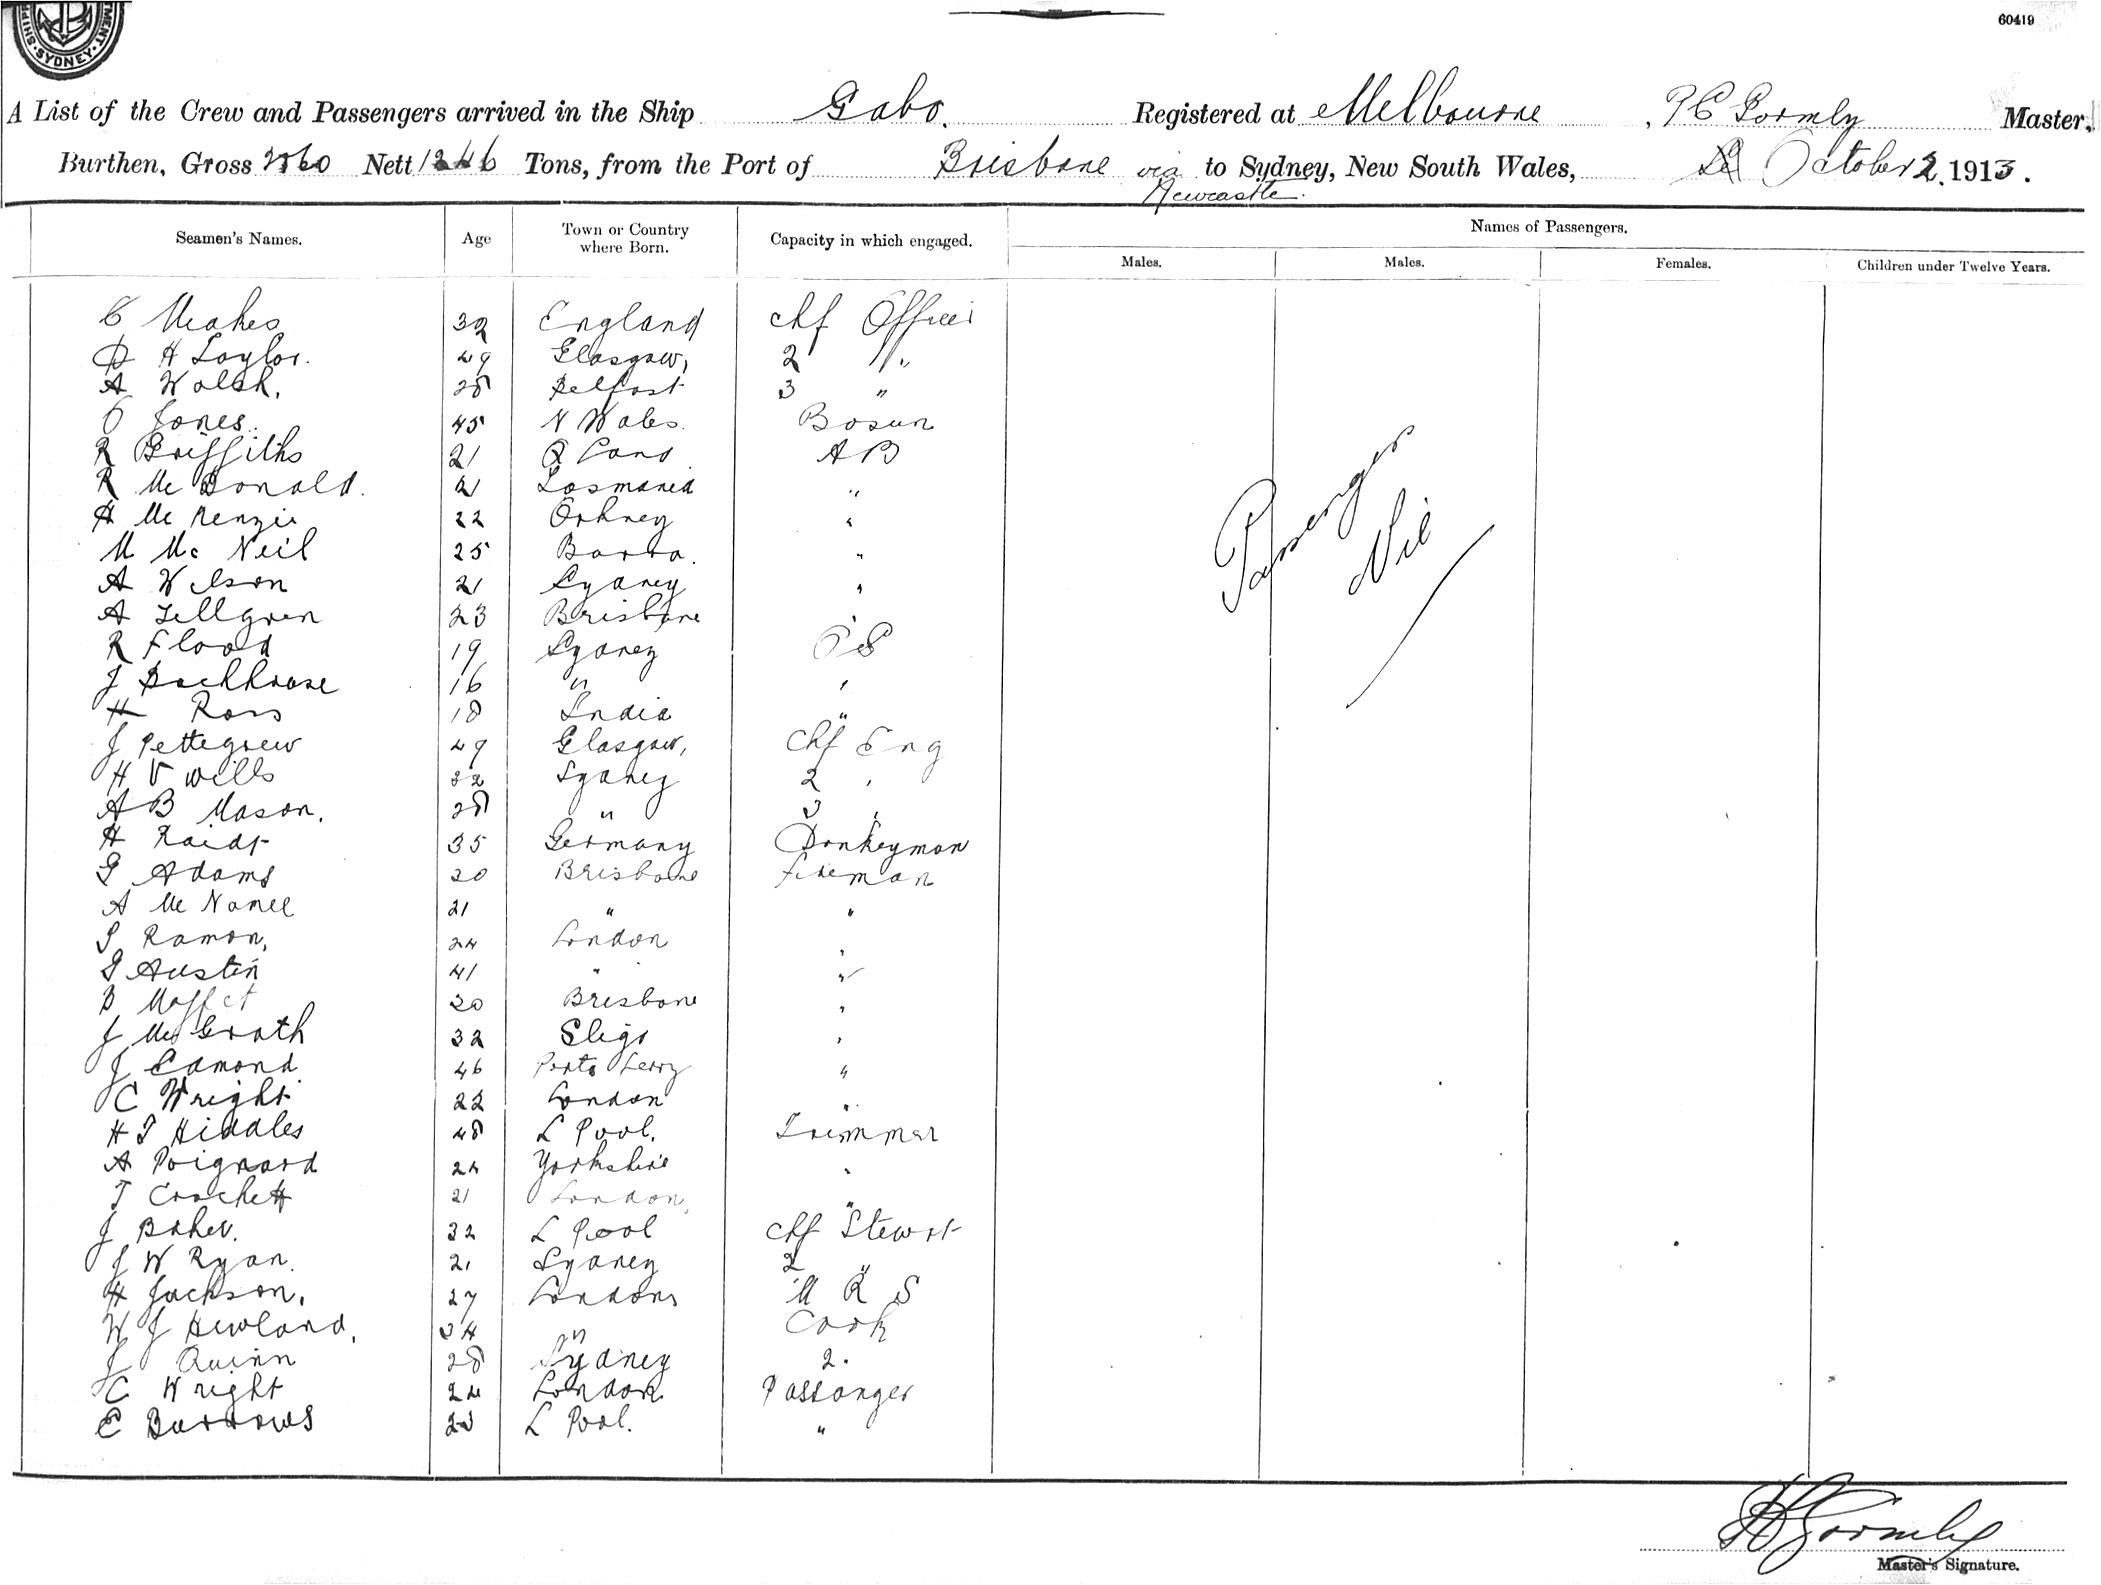 60419
MENT · SYDNEY · SHIP
A List of the Crew and Passengers arrived in the Ship Gabo. Registered at Melbourne, P C Gormly Master,
Burthen, Gross 2060 Nett 1246 Tons, from the Port of Brisbane via to Sydney, New South Wales, October 2. 1913.
Newcastle.
Seamen's Names. Age Town or Country where Born. Capacity in which engaged. Names of Passengers.
Males. Males. Females. Children under Twelve Years.
C Meakes 32 England Chf Officer
D H Taylor. 49 Glasgow, 2 "
A Walsh. 28 Belfast 3 "
O Jones. 45 N Wales. Bosun
R Griffiths 21 Q Land A B
R McDonald. 21 Tasmania "
H McKenzie 22 Orkney "
M Mc Neil 25 Barra. "
A Wilson 21 Sydney "
A Tellgren 23 Brisbane "
R Flood 19 Sydney O S
J Backhouse 16 " "
H Ross 18 India "
J Pettegrew 49 Glasgow, Chf Eng
H V Wills 32 Sydney 2 "
A B Mason. 28 " 3 "
H Raidt 35 Germany Donkeyman
G Adams 20 Brisbane Fireman
A McNamee 21 " "
S Ramon, 24 London "
G Austin 41 " "
B Moffet 20 Brisbane "
J McGrath 32 Sligo "
J Edmond 46 Porto Ferry "
C Wright 22 London "
H T Hiddles 48 L Pool. Trimmer
A Poignard 24 Yorkshire "
T Crockett 21 London, "
J Baker. 32 L Pool Chf Stewrt
J W Ryan. 21 Sydney 2 "
H Jackson. 27 London M R S
W J Hewland. 34 " Cook
J Quinn 28 Sydney 2.
C Wright 24 London Passanger
E Burrows 23 L Pool. "
Passenger
Nil
Gormly
Master's Signature.